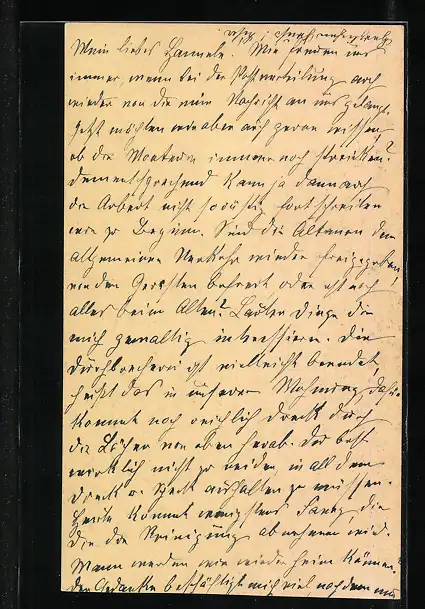 Mein liebes Hannele. Wie freuen uns
immer, wenn bei der Postverteilung auch
wieder von dir eine Nachricht an uns gelangt.
Jetzt möchten wir aber auch gerne wissen,
ob die Monteure immer noch streiken?
Dementsprechend kann ja dann auch
die Arbeit nicht so rüstig fortschreiten
wie zu Beginn. Sind die Altanen dem
allgemeinen Verkehr wieder freigegeben,
von den Gerüsten befreit oder ist noch
alles beim Alten? Lauter Dinge die
mich gewaltig interessieren. Die
Durchbrecherei ist vielleicht beendet
heißt das in unserer Wohnung, dafür
kommt noch reichlich Dreck durch
die Löcher von oben herab. Du bist
wirklich nicht zu beneiden, in all dem
Dreck u. Speck aushalten zu müssen.
Heute kommt wenigstens Fanny, die
Dir die Reinigung abnehmen wird.
Wann werden wir wieder heim können?
Der Gedanke beschäftigt mich viel, nachdem uns